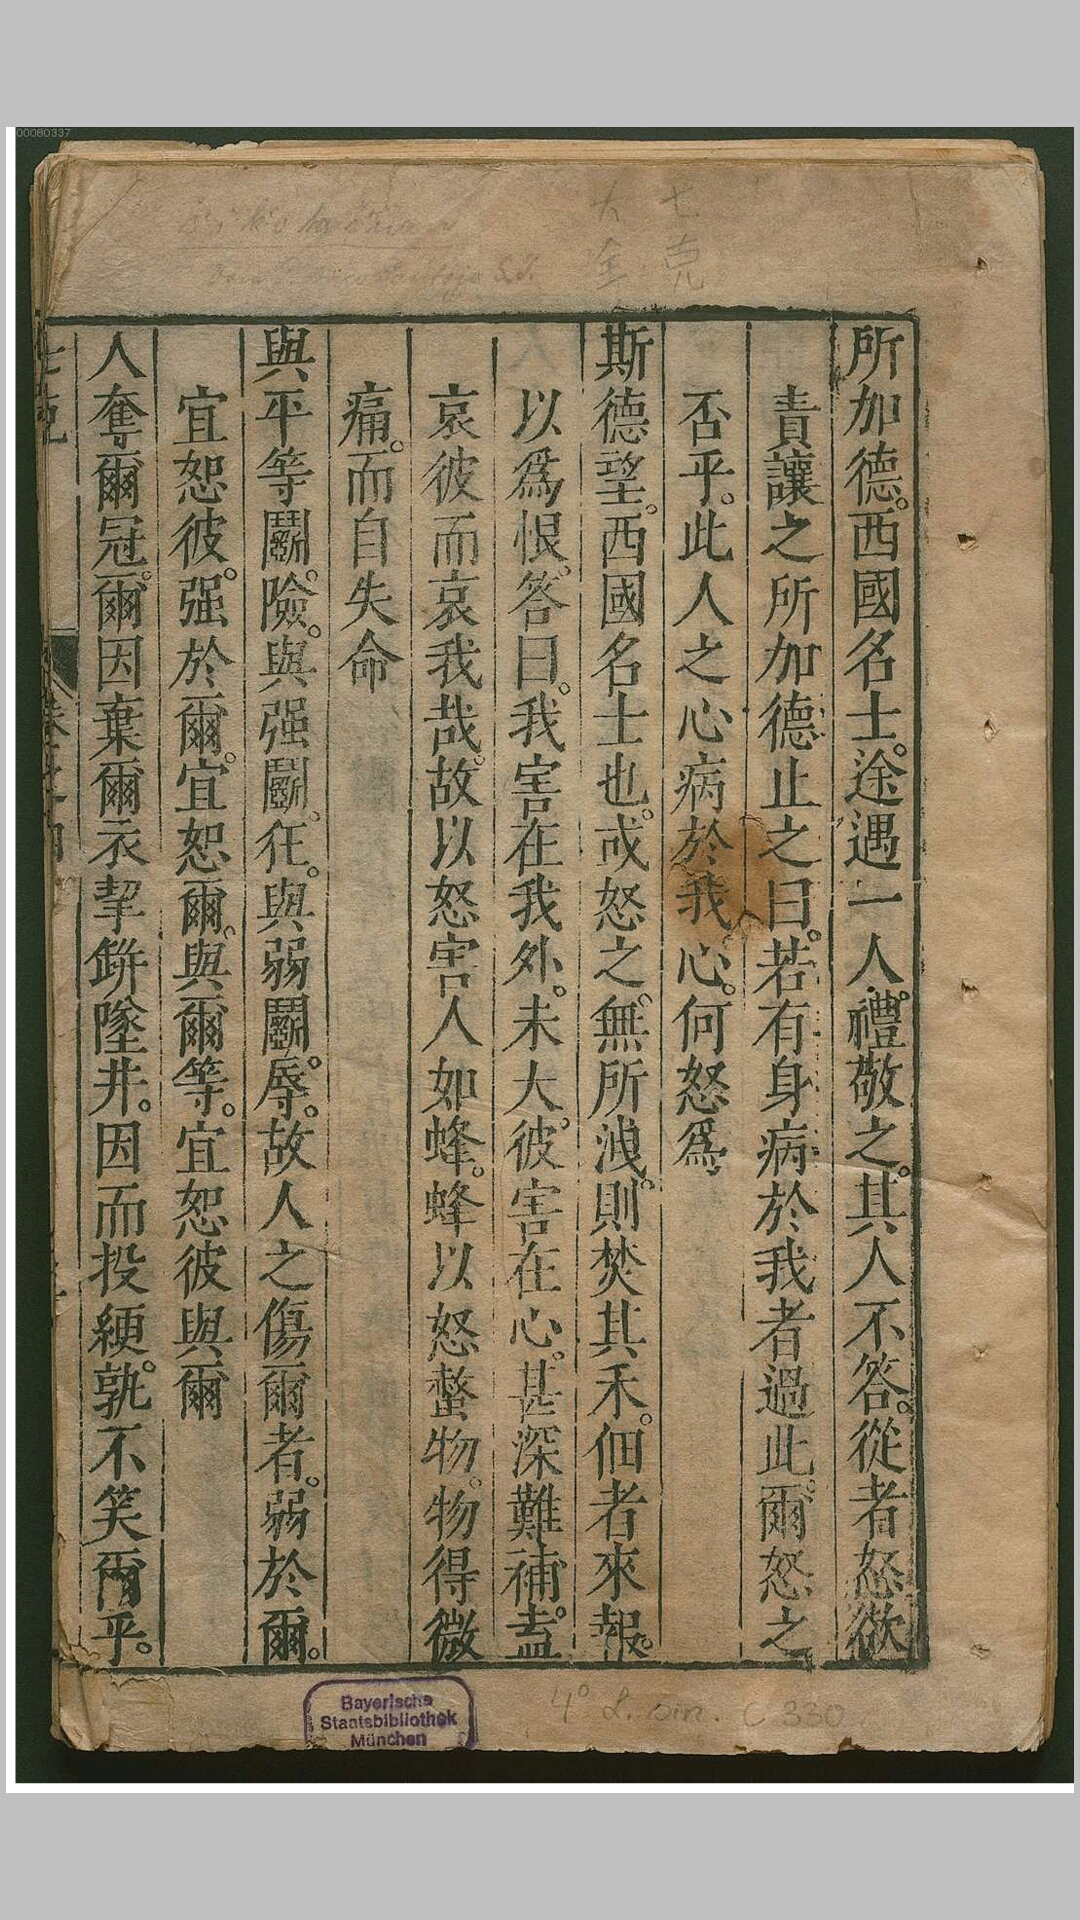 00080337
七克
大全
所加德。西國名士。途遇一人。禮敬之。其人不答。從者怒欲
責讓之所加德止之曰。若有身病於我者過此。爾怒之
否乎。此人之心病於我心。何怒爲
斯德望。西國名士也。或怒之。無所洩。則焚其禾。佃者來報。
以爲恨。答曰。我害在我外。未大。彼害在心。甚深難補。盍
哀彼而哀我哉。故以怒害人如蜂。蜂以怒螫物。物得微
痛。而自失命
與平等鬭。險。與强鬭。狂。與弱鬭。辱。故人之傷爾者。弱於爾。
宜恕彼。强於爾。宜恕爾。與爾等。宜恕彼與爾
人奪爾冠。爾因棄爾衣挈缾墜井。因而投綆。孰不笑爾乎。
七克 卷之四
Bayerische
Staatsbibliothek
München
4° L. sin. C 330